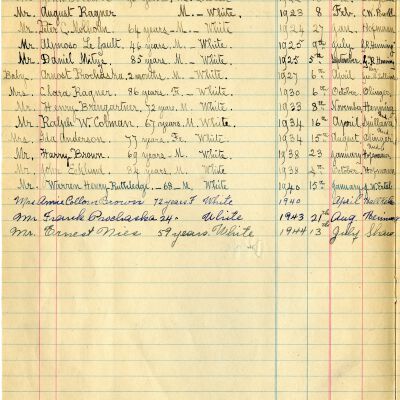 Mr. August Ragner M. - White. 1923 8 Feb.
Mr. 64 years - M. - White. 1924 27 Jan.
Mr. 46 years. M. - White. 1925 9th July
Mr. Daniel 85 years - M. - White. 1925 5th September
Baby Ernest Prochaska, 2 months. M. - White. 1927 6th April
Mrs. Clara Ragner. 86 years. Fe. - White. 1930 6th October Olinger
Mr. Henry Baumgartner, 72 years. M. White. 1933 3rd November Henning
Mr. Ralph W. Colman. 67 years. M. White. 1934 16th April
and
Mrs. Ida Anderson. 77 years. Fe. White. 1934 15th August Olinger
and
Mr. Harry Brown 69 years. M. White. 1938 23 January
Mr. John Eklund. 84 years. M. White. 1938 October
Mr. Warren Henry Ruttledge - 68 - M. White. 1940 15th January
Mrs Annie Brown 72 years. F White 1940 April
Mr Frank Prochaska 24 White 1943 21st Aug. Henning
Mr. Ernest Nies 59 years. White 1944 13th July Shaw